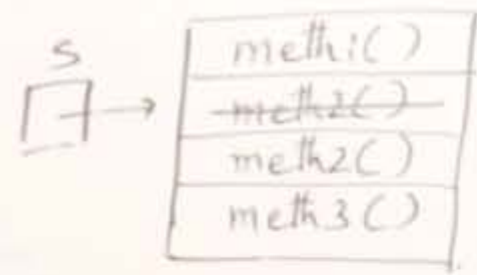 S
meth1()
meth2()
meth2()
meth3()